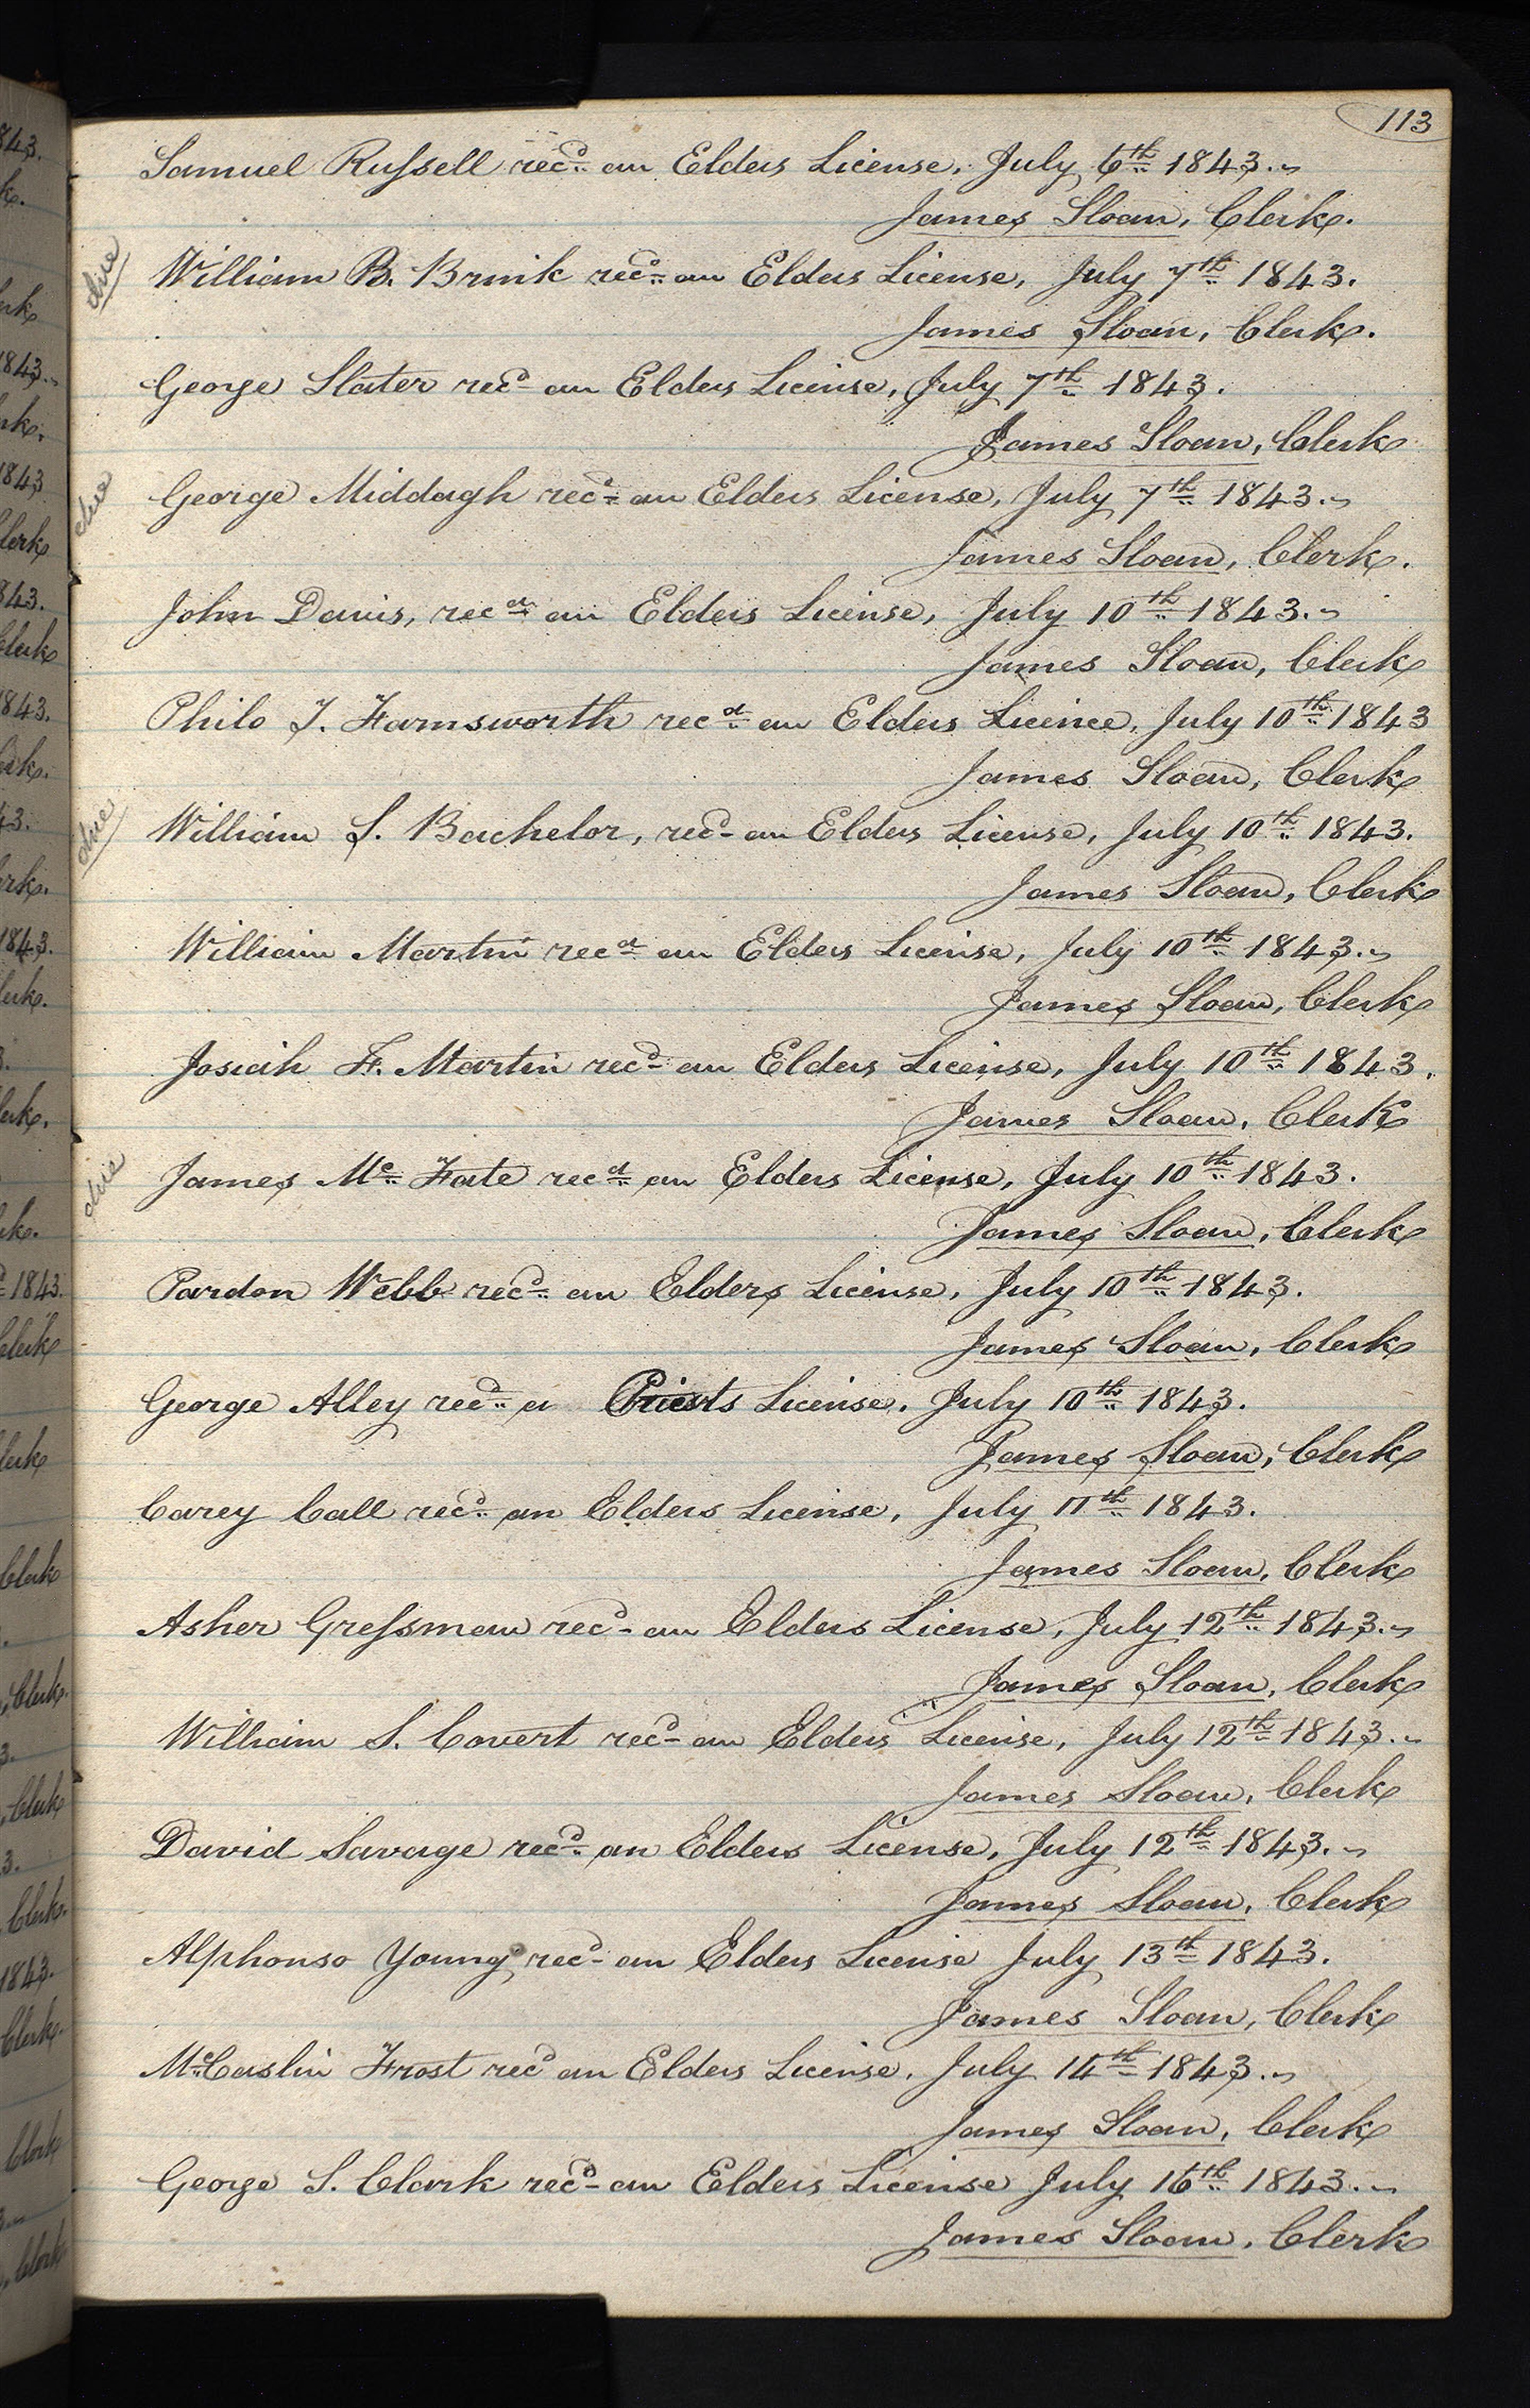 113
Samuel Russell recd. an Elders License, July 6th 1843.
James Sloan, Clerk.
due
William B. Brink recd. an Elders License, July 7th 1843.
James Sloan, Clerk.
George Slater recd an Elders License, July 7th 1843.
James Sloan, Clerk
due
George Middagh recd. an Elders License, July 7th 1843.
James Sloan, Clerk.
John Davis, recd. an Elders License, July 10th 1843.
James Sloan, Clerk
Philo T. Farnsworth recd. an Elders Licence, July 10th 1843
James Sloan, Clerk
due
William S. Bachelor, recd an Elders License, July 10th 1843.
James Sloan, Clerk
William Martin recd an Elders License, July 10th 1843.
James Sloan, Clerk
Josiah F. Martin recd an Elders License, July 10th 1843.
James Sloan, Clerk
due
James Mc Fate recd. an Elders License, July 10th 1843.
James Sloan, Clerk
Pardon Webb recd. an Elders License, July 10th 1843.
James Sloan, Clerk
George Alley recd. a Priests License. July 10th 1843.
James Sloan, Clerk
Carey Call recd. an Elders License, July 11th 1843.
James Sloan, Clerk
Asher Gressman recd an Elders License, July 12th 1843.
James Sloan, Clerk
William S. Covert recd an Elders License, July 12th 1843.
James Sloan, Clerk
David Savage recd. an Elders License, July 12th 1843.
James Sloan, Clerk
Alphonso Young recd an Elders License July 13th 1843.
James Sloan, Clerk
McCaslin Frost recd an Elders License, July 14th 1843.
James Sloan, Clerk
George S. Clark recd an Elders License July 16th 1843.
James Sloan, Clerk